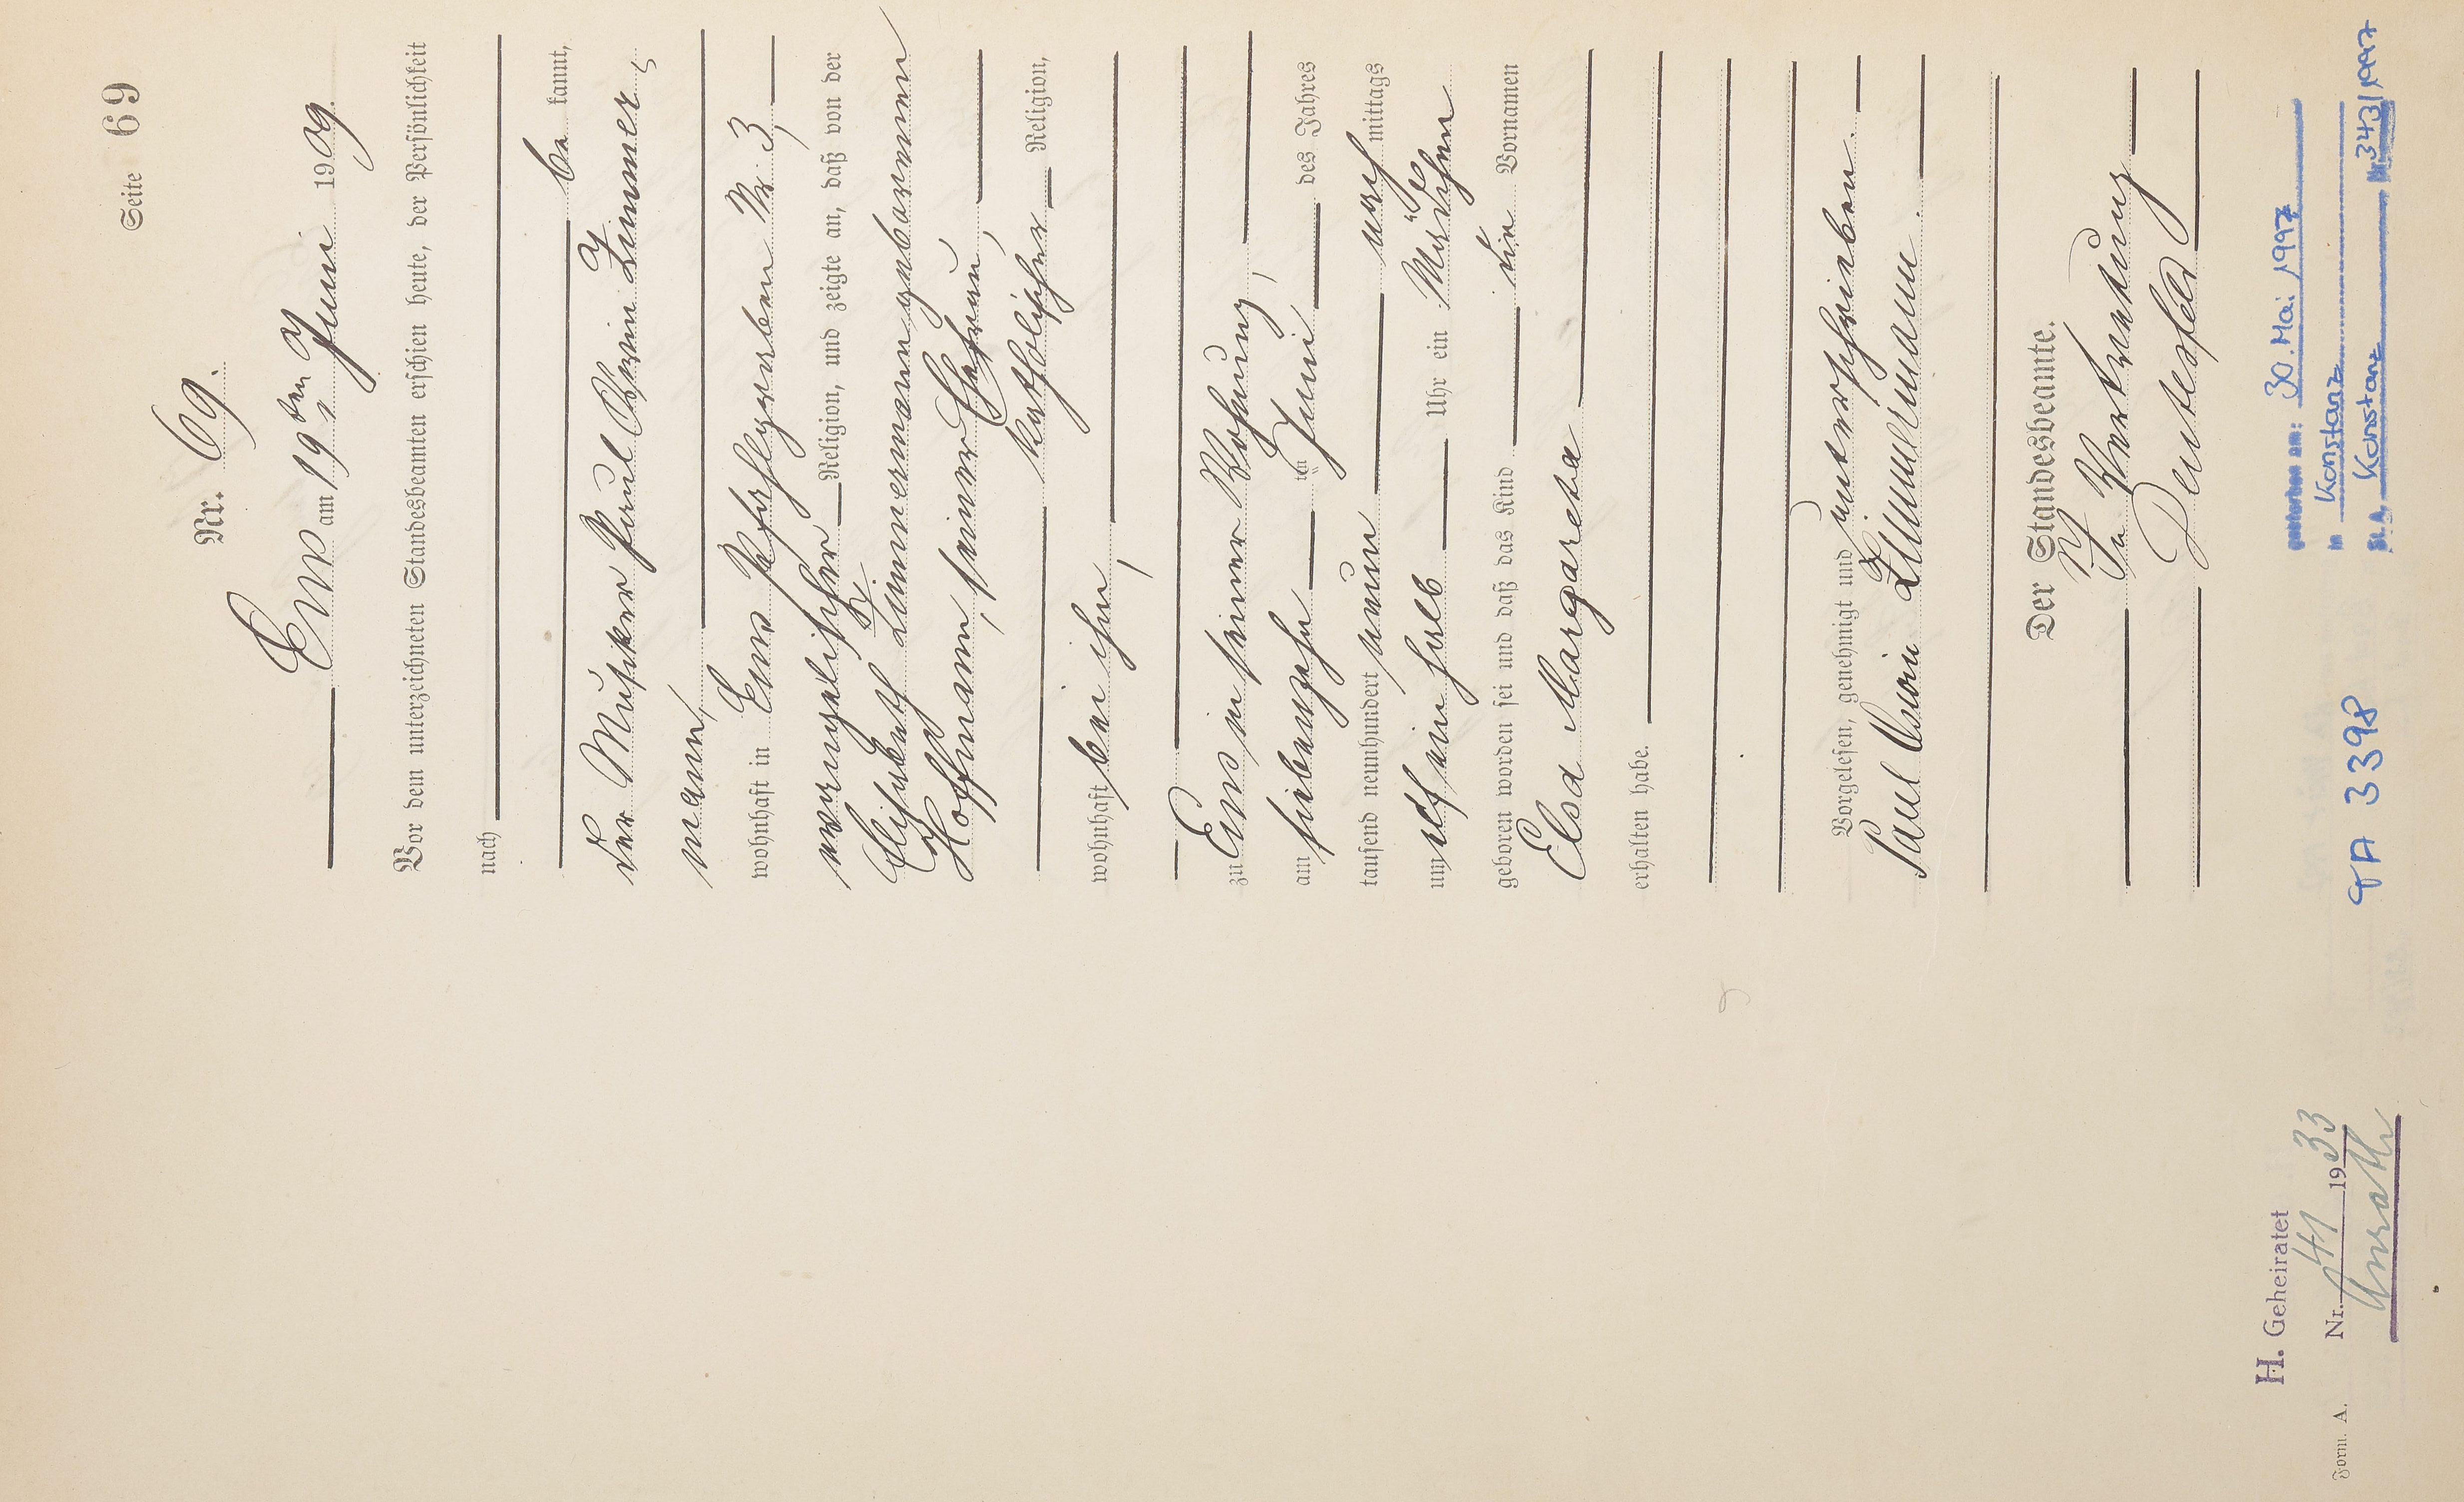 Seite 69
Nr. 69.
Ems am 19ten Juni 1909.
Vor dem unterzeichneten Standesbeamten erschien heute, der Persönlichkeit
nach
be kannt,
der Musiker Paul Oswin Zimmer-
mann,
wohnhaft in Ems, Nr 3,
evangelischer Religion, und zeigte an, daß von der
Elisabeth Zimmermann geborenen
Hoffmann, seiner Ehefrau,
katholischer Religion,
wohnhaft bei ihm,
zu Ems in seiner Wohnung,
am siebenzehn ten Juni des Jahres
tausend neunhundert neun nach mittags
um elf ein halb Uhr ein Mädchen
geboren worden sei und daß das Kind die Vornamen
Elsa Margareta
erhalten habe.
Vorgelesen, genehmigt und unterschrieben.
Paul Oswin Zimmermann.
Der Standesbeamte.
In Vertretung
gestorben am: 30. Mai 1997
in Konstanz
St.A. Konstanz Nr. 343/1997
8A 3398
H. Geheiratet
Nr. 41 1933
Form. A.